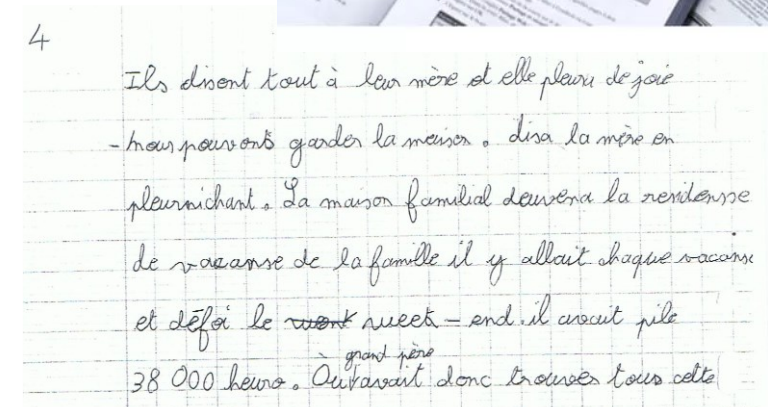 4
Ils disent tout à leur mère et elle pleura de joie
- nous pouvons garder la maison. disa la mère en
pleurnichant. La maison familial deuvena la residensse
de vacanse de la famille il y allait chaque vacanse
et défoi le week-end. il avait pile
38 000 heuro. Où grand père avait donc trouver tous cette